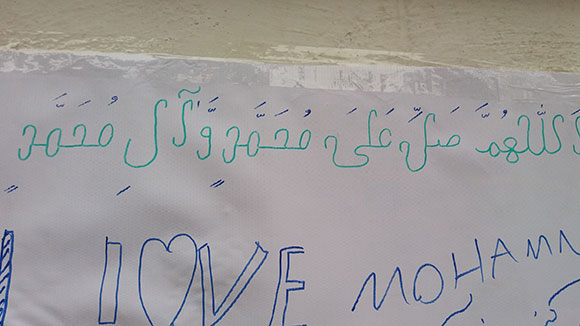 اَللّٰهُمَّ صَلِّ عَلىَ مُحَمَّدٍ وَّآلِ مُحَمَّدٍ
I LOVE MOHAMM